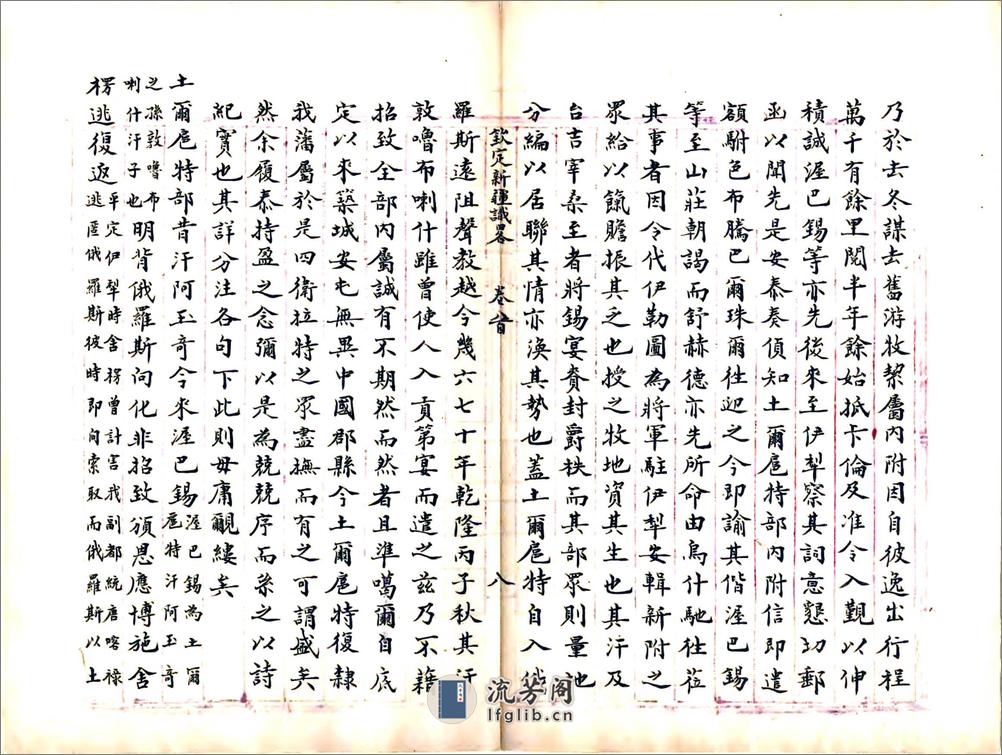 乃於去冬謀去舊游牧挈屬內附因自彼逸出行程
萬千有餘里閱半年餘始抵卡倫及准令入覲以伸
積誠渥巴錫等亦先後來至伊犁察其詞意懇切郵
函以聞先是安泰奏偵知土爾扈特部內附信即遣
額駙色布騰巴爾珠爾往迎之今即諭其偕渥巴錫
等至山莊朝謁而舒赫德亦先所命由烏什馳往蒞
其事者因令代伊勒圖為將軍駐伊犁安輯新附之
眾給以餼贍振其之也授之牧地資其生也其汗及
台吉宰桑至者將錫宴賚封爵秩而其部眾則量地
分編以居聯其情亦渙其勢也蓋土爾扈特自入俄
欽定新疆識畧 卷首 八
羅斯遠阻聲教越今幾六七十年乾隆丙子秋其汗
敦嚕布喇什雖曾使人入貢第宴而遣之茲乃不藉
招致全部內屬誠有不期然而然者且準噶爾自底
定以來築城安屯無異中國郡縣今土爾扈特復隸
我藩屬於是四衛拉特之眾盡撫而有之可謂盛矣
然余履泰持盈之念彌以是為兢兢序而系之以詩
紀實也其詳分注各句下此則毋庸覼縷矣
土爾扈特部昔汗阿玉奇今來渥巴錫渥巴錫為土爾扈特汗阿玉奇
之孫敦嚕布喇什汗子也明背俄羅斯向化非招致頒恩應博施舍
楞逃復返平定伊犁時舍楞曾計害我副都統唐喀祿逃匿俄羅斯彼時即向索取而俄羅斯以土
流芳阁
lfglib.cn